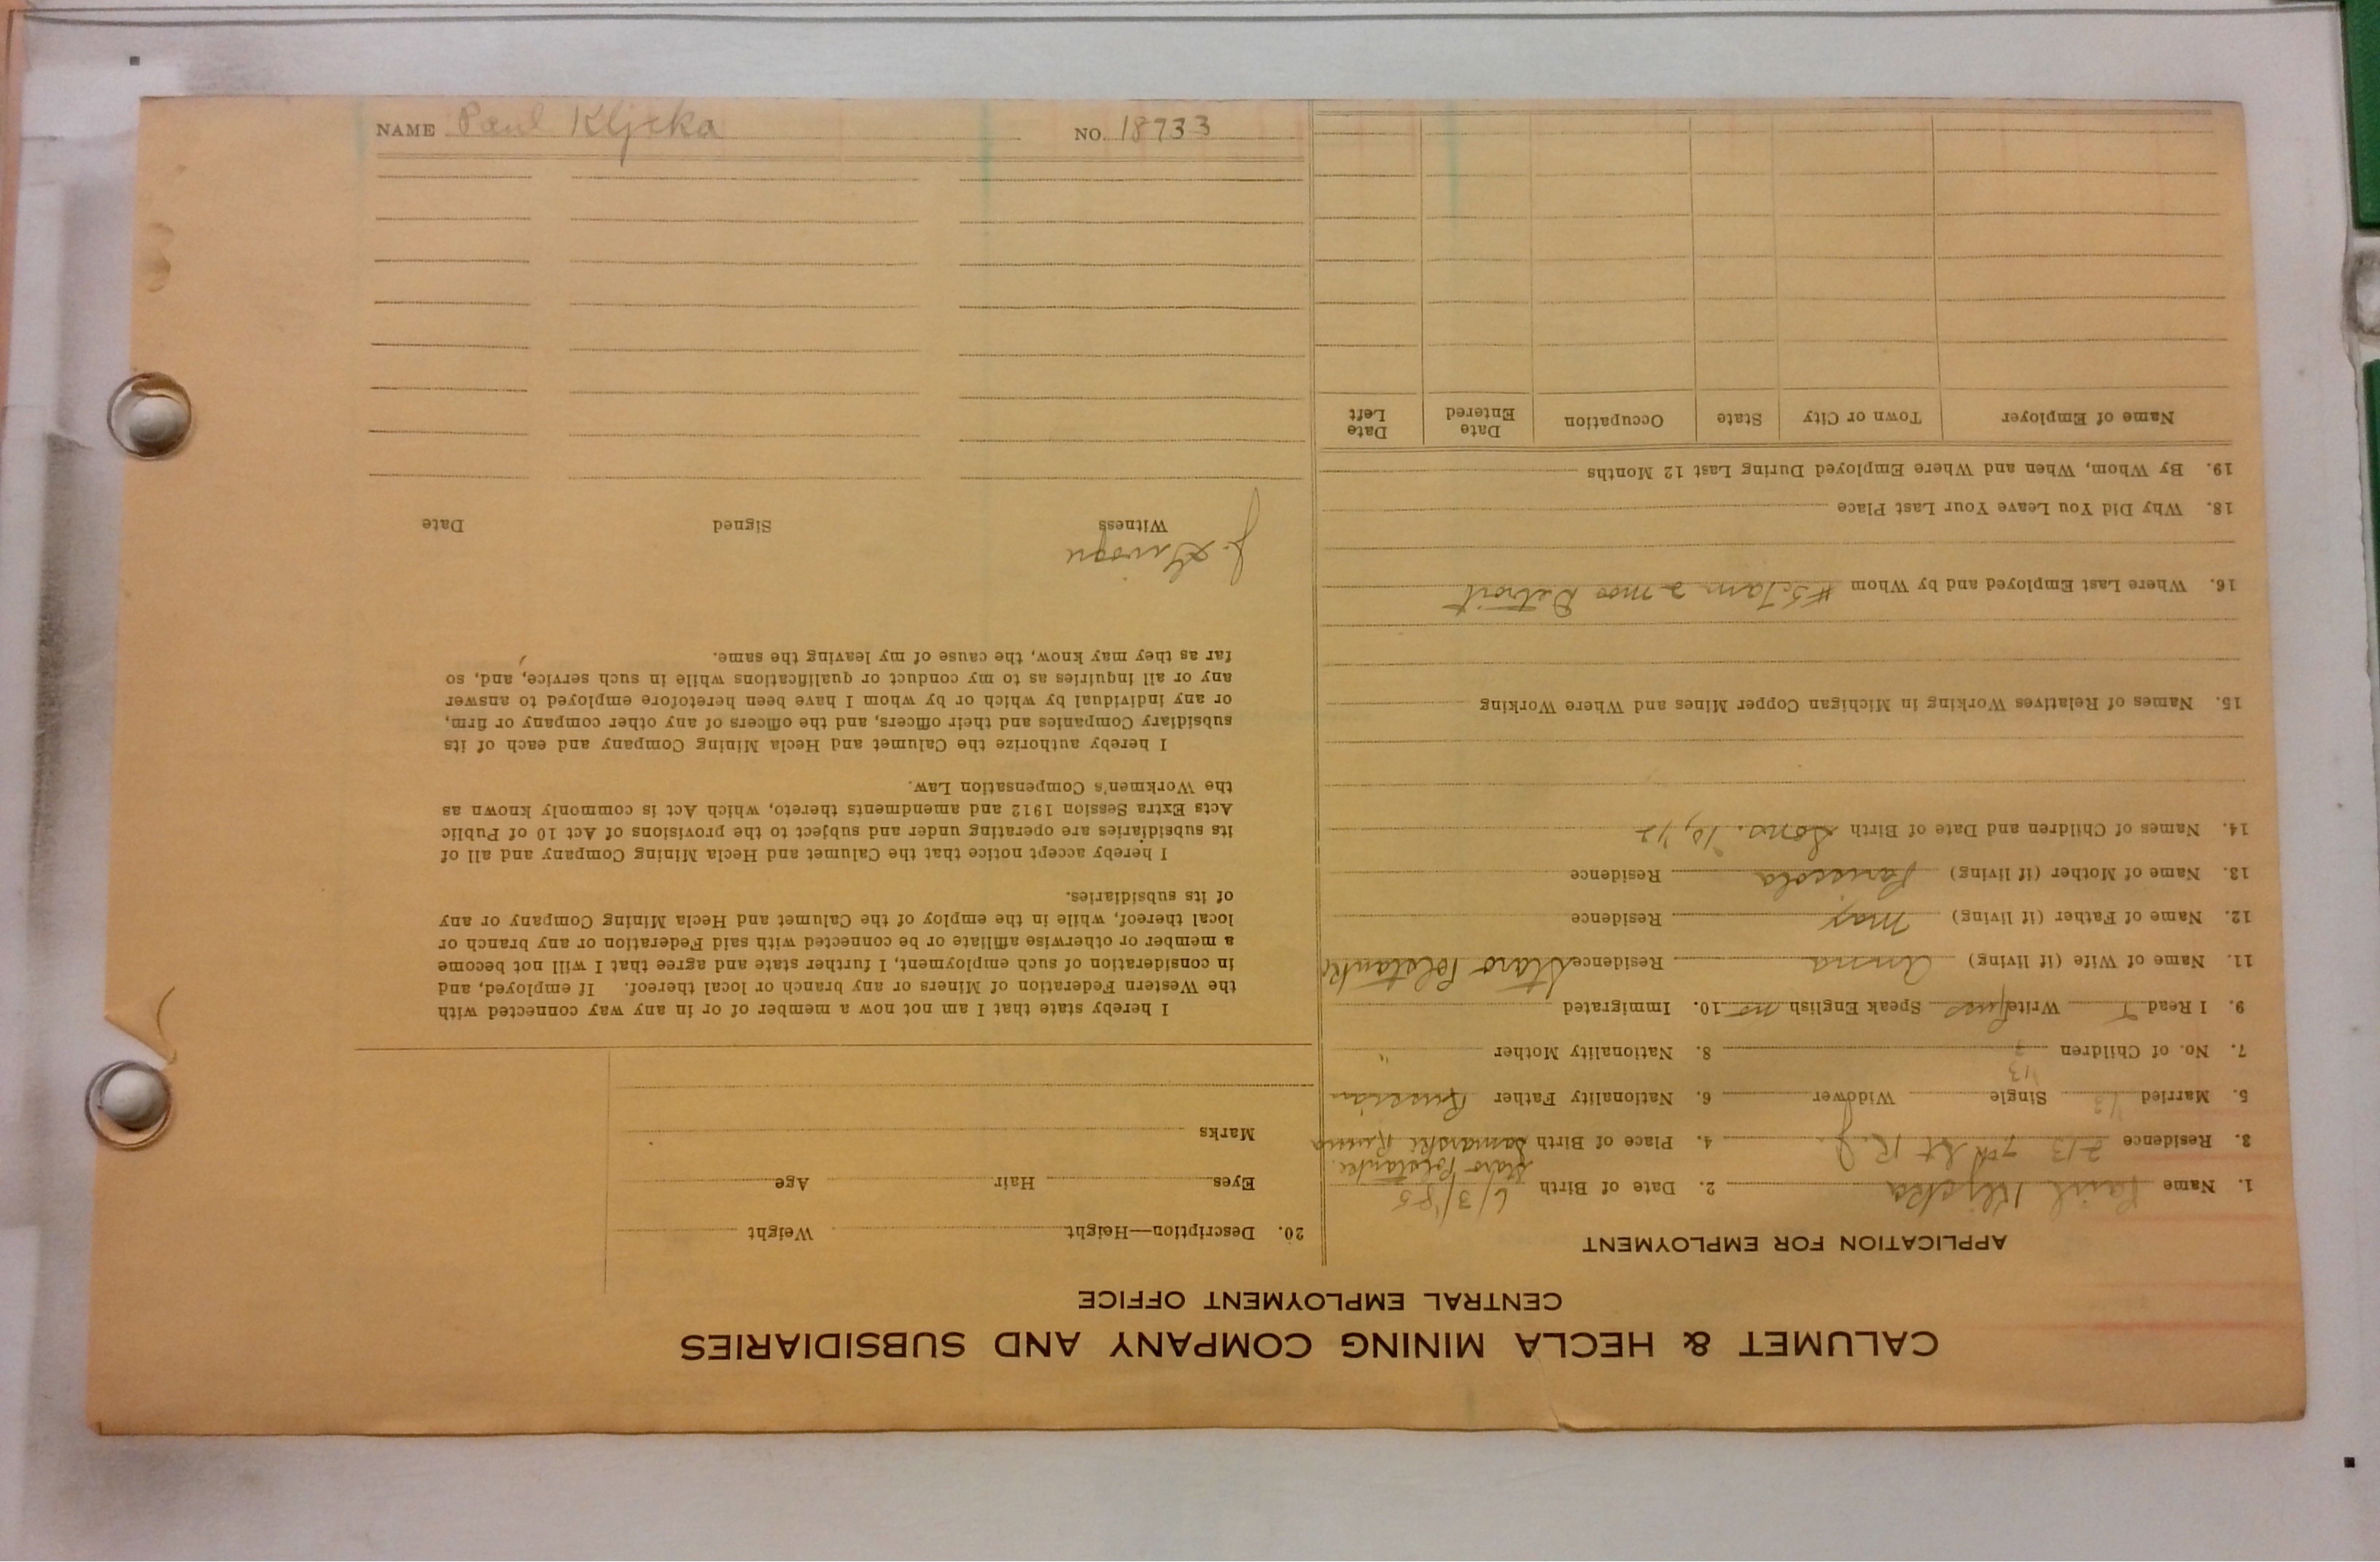 NAME Paul Kljcka NO. 18733
CALUMET & HECLA MINING COMPANY AND SUBSIDIARIES
CENTRAL EMPLOYMENT OFFICE
APPLICATION FOR EMPLOYMENT
1. Name Paul Kljcka 2. Date of Birth 6/3/85
3. Residence 213 7th St 4. Place of Birth Samarski
5. Married Single Widower 6. Nationality Father Russian
7. No. of Children 8. Nationality Mother "
9. I Read Write Speak English no 10. Immigrated
11. Name of Wife (if living) Anna Residence Staro
12. Name of Father (if living) Residence
13. Name of Mother (if living) Residence
14. Names of Children and Date of Birth Sons. 10, 12
15. Names of Relatives Working in Michigan Copper Mines and Where Working
16. Where Last Employed and by Whom 2 mos Detroit
18. Why Did You Leave Your Last Place
19. By Whom, When and Where Employed During Last 12 Months
Name of Employer Town or City State Occupation Date Entered Date Left
20. Description—Height Weight
Eyes Hair Age
Marks
I hereby state that I am not now a member of or in any way connected with
the Western Federation of Miners or any branch or local thereof. If employed, and
in consideration of such employment, I further state and agree that I will not become
a member or otherwise affiliate or be connected with said Federation or any branch or
local thereof, while in the employ of the Calumet and Hecla Mining Company or any
of its subsidiaries.
I hereby accept notice that the Calumet and Hecla Mining Company and all of
its subsidiaries are operating under and subject to the provisions of Act 10 of Public
Acts Extra Session 1912 and amendments thereto, which Act is commonly known as
the Workmen's Compensation Law.
I hereby authorize the Calumet and Hecla Mining Company and each of its
subsidiary Companies and their officers, and the officers of any other company or firm,
or any individual by which or by whom I have been heretofore employed to answer
any or all inquiries as to my conduct or qualifications while in such service, and, so
far as they may know, the cause of my leaving the same.
Witness Signed Date